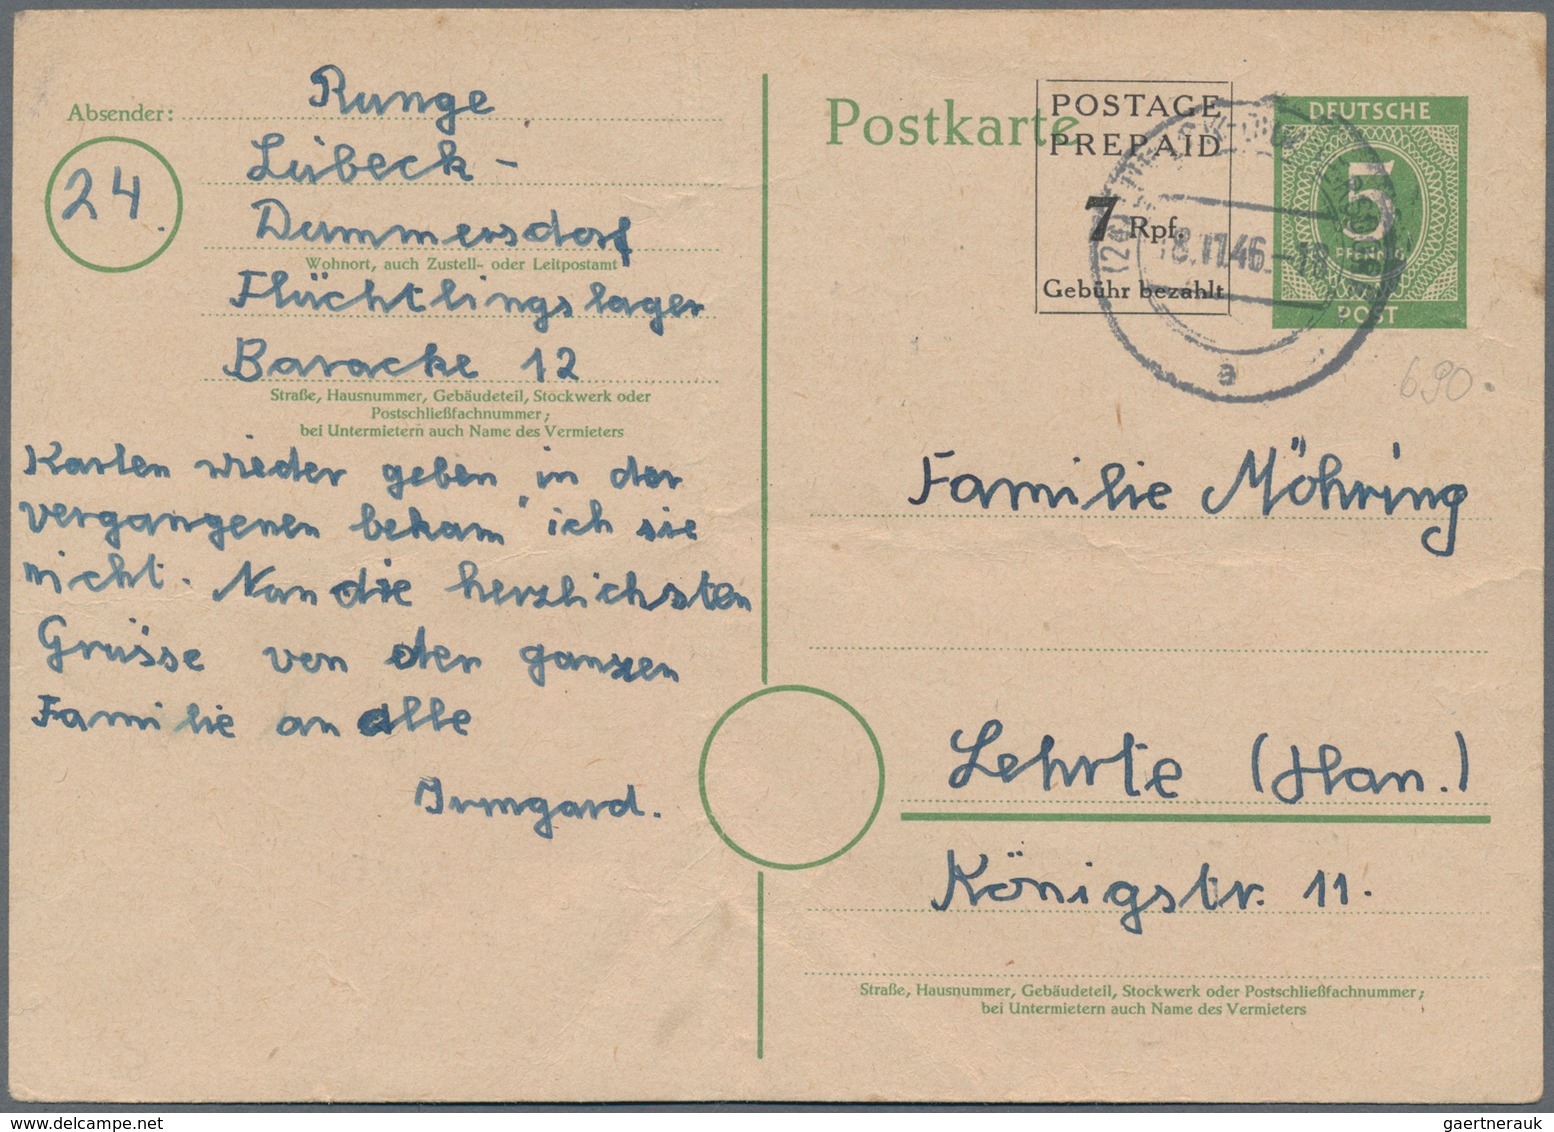 Absender:
Runge
24
Lübeck -
Dummersdorf
Wohnort, auch Zustell- oder Leitpostamt
Flüchtlingslager
Baracke 12
Straße, Hausnummer, Gebäudeteil, Stockwerk oder
Postschließfachnummer;
bei Untermietern auch Name des Vermieters
Karten wieder geben in der
vergangenen bekam ich sie
nicht. Nun die herzlichsten
Grüsse von der ganzen
Familie an alle
Irmgard.
Postkarte
POSTAGE
PREPAID
7 Rpf.
Gebühr bezahlt
DEUTSCHE
5
POST
18.11.46.-18
a
690.
Familie Möhring
Lehrte (Han.)
Königstr. 11.
Straße, Hausnummer, Gebäudeteil, Stockwerk oder Postschließfachnummer;
bei Untermietern auch Name des Vermieters
gaertnerauk @ delcampe.net